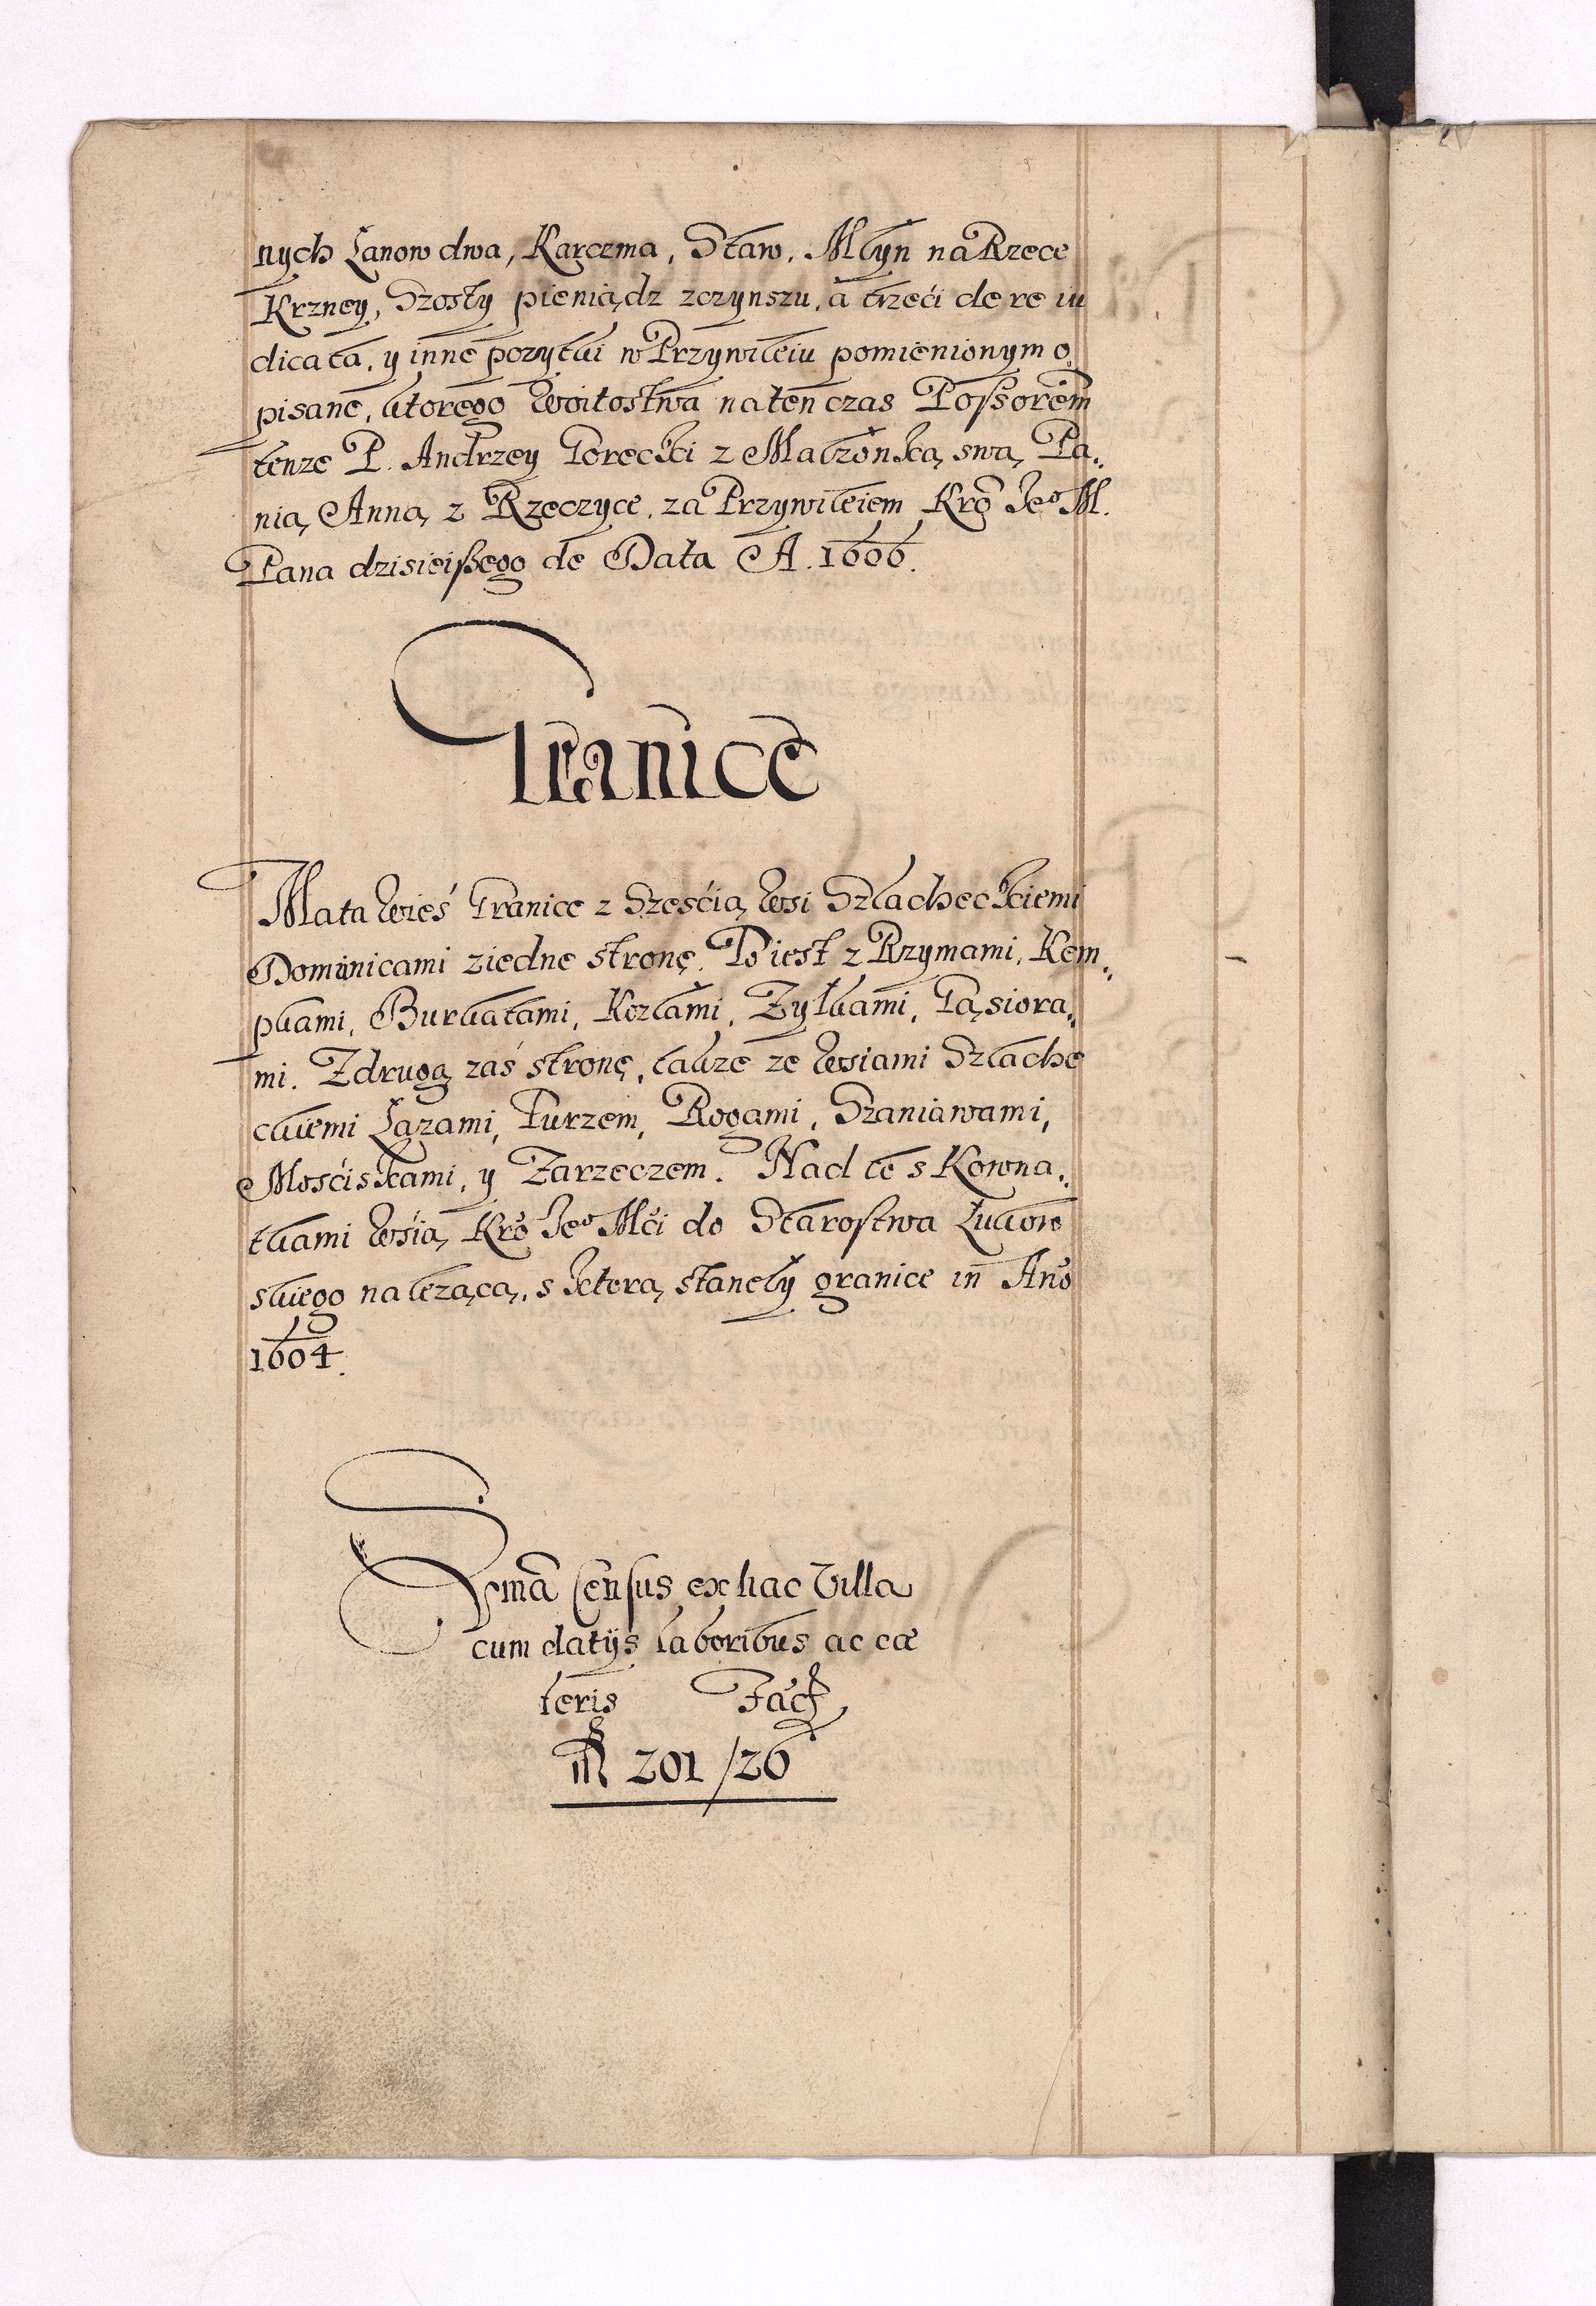 nych Łanow dwa, Karczma, Staw, Młyn na Rzece
Krzney, Szosty pieniądz z czynszu, a trzeci de re iu
dicata, y inne pozytki w Przywileiu pomienionym o
pisane, ktorego Woitostwa na ten czas Possorem
tenze P. Andrzey Gorecki z Małzonką swą Pa,,
nią Anną z Rzeczyce, za Przywileiem Krō Jeº M.
Pana dzisieiszego de Data A. 1606.
Granice
Ma ta Wieś Granice z Szescią Wsi Szlacheckiemi
Dominicami z iedne stronę. To iest z Rzymami, Kem,,
pkami, Burkatami, Kozłami, Zyłkami, Gąsiora,,
mi. Z drugą zaś stronę, takze ze Wsiami Szlache
ckiemi Łazami, Turzem, Rogami, Szaniawami,
Mościskami, y Zarzeczem. Nad to s Kowna,,
tkami Wsią Krō Jeº Mći do Starostwa Łukow
skiego nalezącą, s ktorą stanęły granice in Ano
1604.
Suma Census ex hac Villa
cum datijs laboribus ac cæ
teris Facit
M 201/26